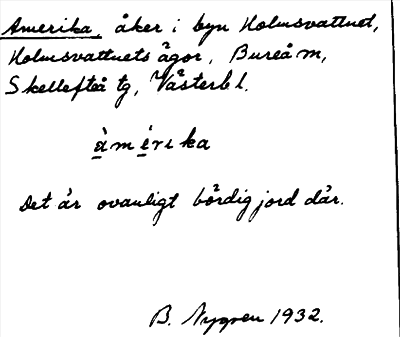 Amerika, åker i byn Holmsvattnet,
Holmsvattnets ägor, Bureå m,
Skellefteå tg, Västerb l.
àmérika
Det är ovanligt bördig jord där.
B. Nygren 1932.